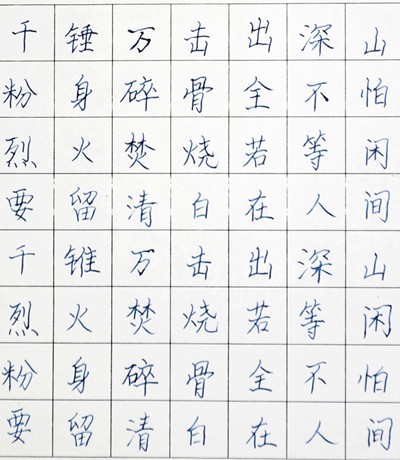 千锤万击出深山
粉身碎骨全不怕
烈火焚烧若等闲
要留清白在人间
千锥万击出深山
烈火焚烧若等闲
粉身碎骨全不怕
要留清白在人间